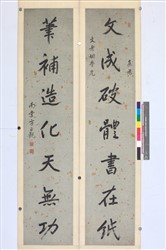 文成破體書在紙
筆補造化天無功